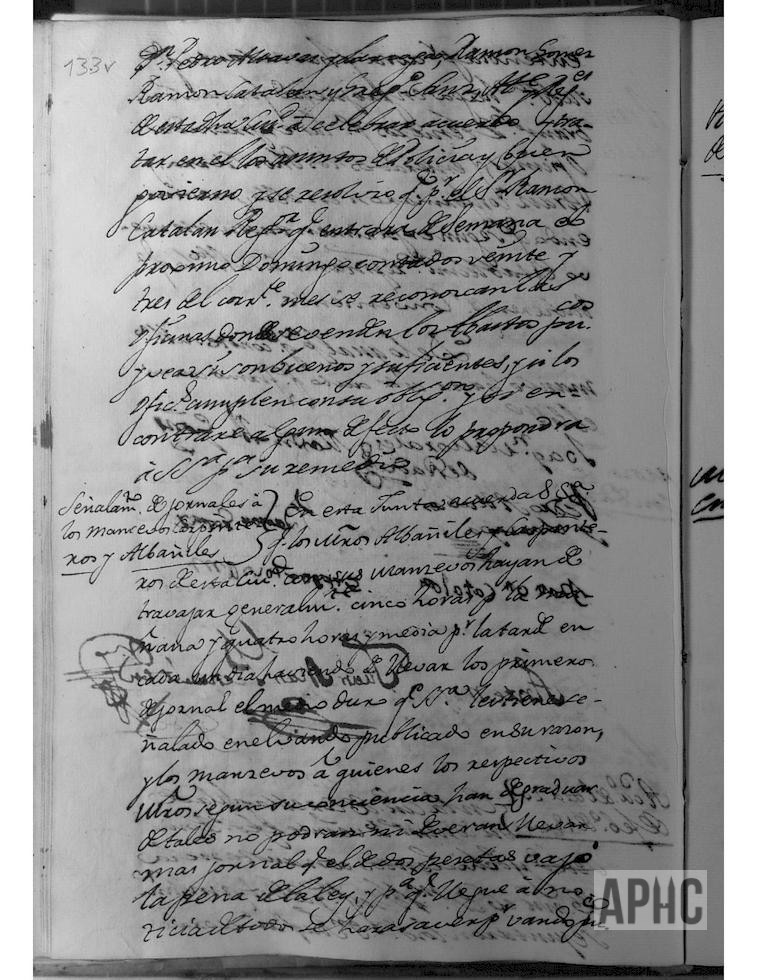 133v
Dn. Pedro Alvarez y Ramon Gomez
Ramon Catalan y Jph. Sanz
de esta dha Ciud. à celebrar acuerdo y tra-
tar en el los asuntos de Policia y buen
govierno y se resolvio q.e p.r el S.r Ramon
Catalan Reg.or q.e entrara de Semana el
proximo Domingo contados veinte y
tres del corr.te mes se reconozcan las
oficinas donde se venden los Abastos pu.cos
y vea si son buenos y suficientes, y si los
ofic.s cumplen con su oblig.on y si en-
contrare algun defecto lo propondra
à S.S.a p.a su remedio
Señalam.to de jornales à
los manzevos Carpinte-
ros y Albañiles
En esta Junta acuerda S.S.a
q.e los Mros Albañiles y Carpinte-
ros de esta Ciud. con sus manzevos hayan de
travajar generalm.te cinco horas p.r la ma-
ñana y quatro horas y media p.r la tarde en
cada un dia haviendo de llevar los primeros
de jornal el medio duro q.e S.S.a les tiene se-
ñalado en el vando publicado en su razon,
y los manzevos à quienes los respectivos
Mros segun su conciencia han de graduar
de tales no podran ni deveran llevar
mas jornal q.e el de dos pesetas vajo
la pena de la ley, y p.a q.e llegue à no-
ticia de todos se hara saver p.r vando pu.co
APHC